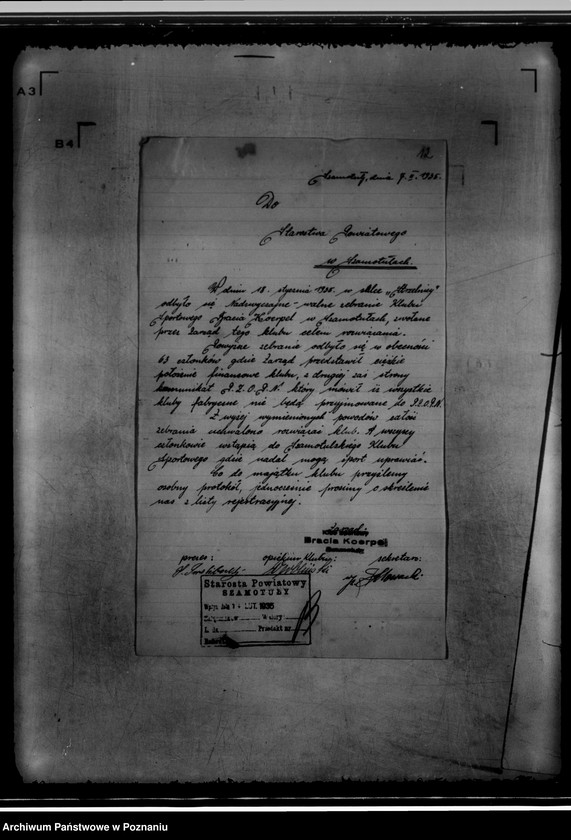 A3
B4
12
Szamotuły, dnia 7.II.1935.
Do
Starostwa Powiatowego
w Szamotułach.
W dniu 18. stycznia 1935. w salce „Strzelnicy"
odbyło się Nadzwyczajne-walne zebranie Klubu
Sportowego Bracia Koerpel w Szamotułach, zwołane
przez Zarząd tego klubu celem rozwiązania.
Powyższe zebranie odbyło się w obecności
63 członków gdzie Zarząd przedstawił ciężkie
położenie finansowe klubu, z drugiej zaś strony
komunikat P.Z.O.P.N. który mówił iż wszystkie
kluby fabryczne nie będą przyjmowane do P.Z.O.P.N.
Z wyżej wymienionych powodów
zebrania uchwalono rozwiązać klub. A wszyscy
członkowie wstąpią do Szamotulskiego Klubu
Sportowego gdzie nadal mogą sport uprawiać.
Co do majątku klubu przyślemy
osobny protokół, jednocześnie prosimy o skreślenie
nas z listy rejestracyjnej.
Zarząd
Bracia Koerpel
Szamotuły
prezes: opiekun klubu: sekretarz:
Starosta Powiatowy
SZAMOTUŁY
Wpłyn. dnia LUT. 1935
Załączników Waluty
L. dz. Przedakt nr.
Archiwum Państwowe w Poznaniu